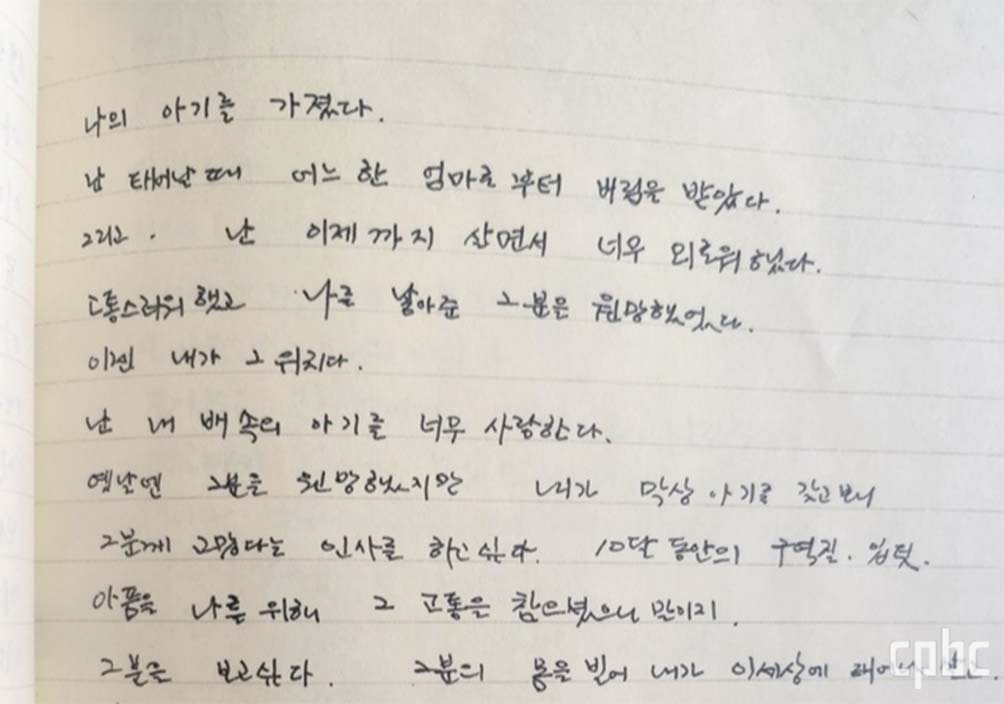 나의 아기를 가졌다.
난 태어날때 어느 한 엄마로부터 버림을 받았다.
그리고. 난 이제까지 살면서 너무 외로워했다.
고통스러워했고 나를 낳아준 그분을 원망했었다.
이젠 내가 그 위치다.
난 내 배속의 아기를 너무 사랑한다.
옛날엔 그분을 원망했지만 내가 막상 아기를 갖고보니
그분께 고맙다는 인사를 하고싶다. 10달 동안의 구역질. 입덧.
아픔을 나를 위해 그 고통을 참으셨으니 말이지.
그분을 보고싶다. 그분의 몸을 빌어 내가 이세상에
cpbc